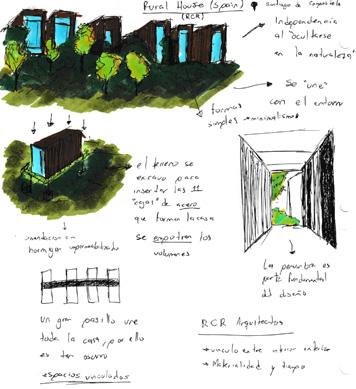 Rural House (Spain)
(RCR)
Santiago de Compostela
Independencia
al ocultarse
en la naturaleza
Se "une"
con el entorno
formas
simples + minimalismo
el terreno se
excava para
insertar las 11
"cajas" de acero
que forman la casa
se empotran los
volumenes
cimentacion en
hormigon impermeabilizado
un gran pasillo une
toda la casa, por ello
es tan oscuro
espacios vinculados
La penumbra es
parte fundamental
del diseño
RCR Arquitectos
→ vinculo entre interior exterior
→ Materialidad y tiempo